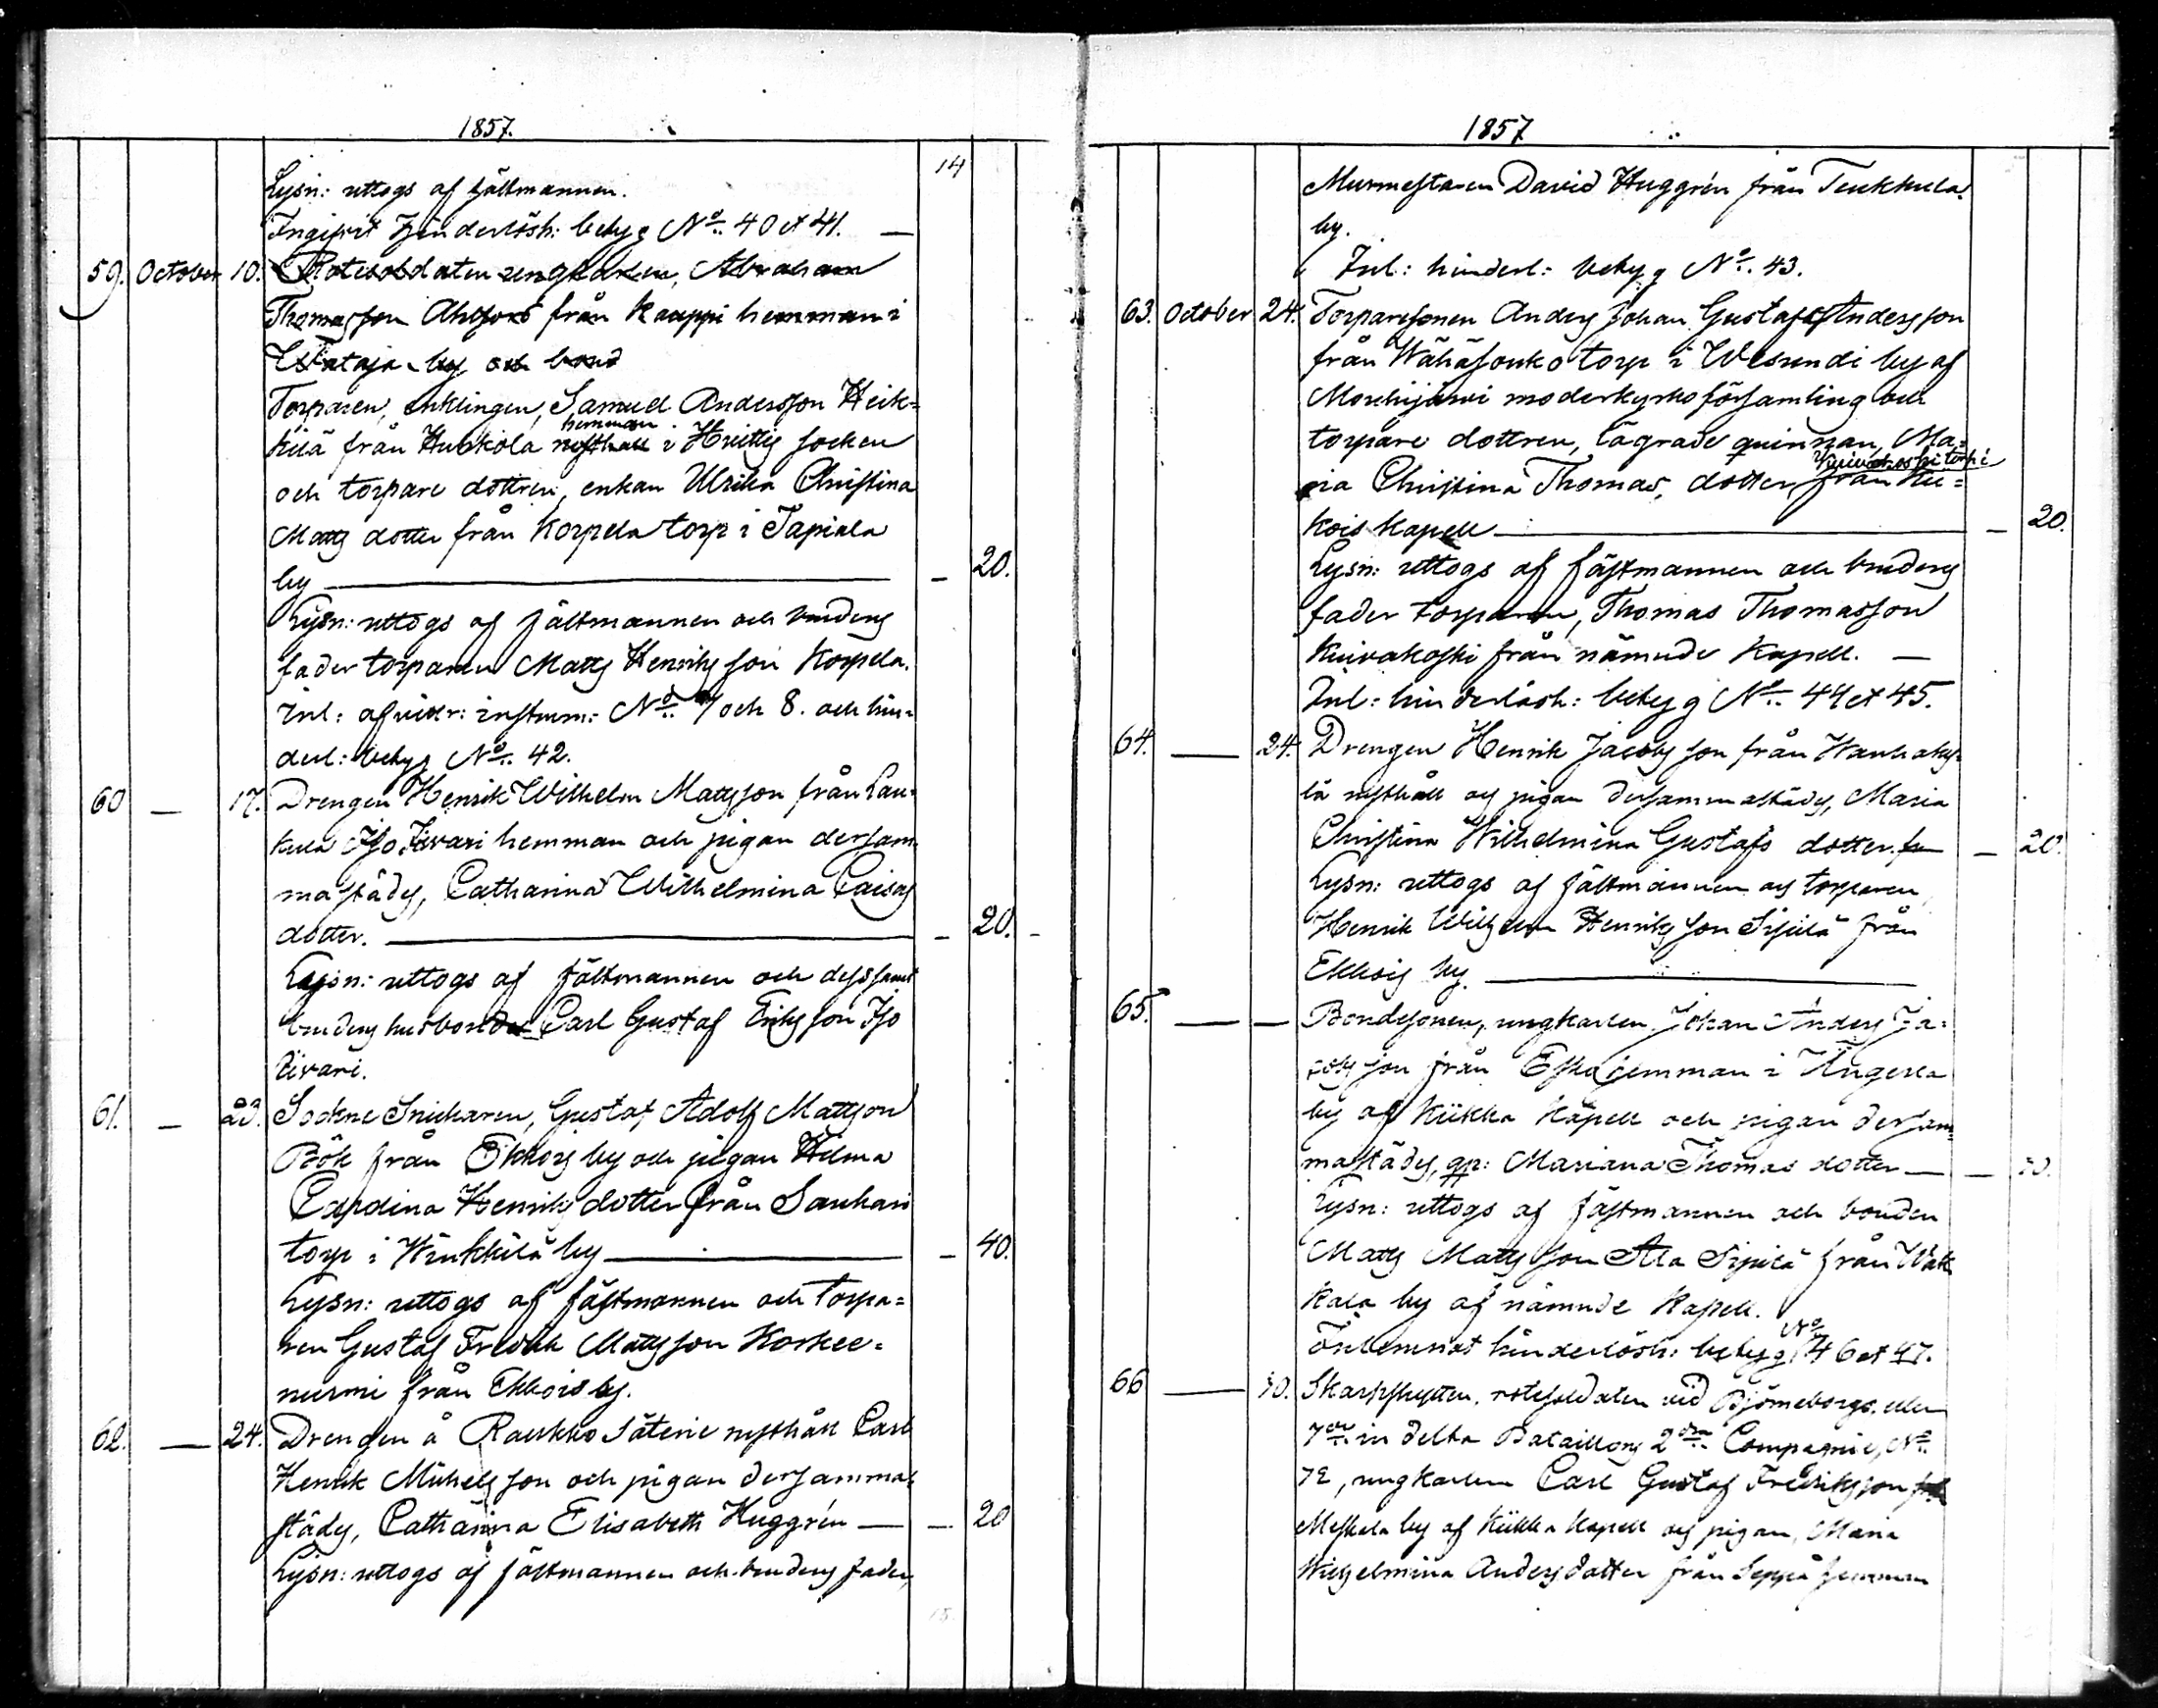 1857.
14
Lysn: uttogs af fästmannen.
Ingifvit hinderlösh: betyg No. 40 et 41. —
59. October 10. Rotesoldaten ungkarlen, Abraham
Thomasson Ahlfors från Kauppi hemman i
Wataja by och bond
Torparen, enklingen, Samuel Andersson Heik-
hemman
kilä från Hunkola rusthåll i Huittis socken
och torpare dottren, enkan Ulrika Christina
Matts dotter från Korpela torp i Tapiala
by — 20.
Lysn: uttogs af fästmannen och brudens
fader torparen Matts Henriksson Korpela.
Inl: afvittr: instrum: No. 7 och 8. och hin-
derl: betyg No. 42.
60 — 17. Drengen Henrik Wilhelm Mattsson från Lau-
kula Iso Iivari hemman och pigan dersam-
mastädes, Catharina Wilhelmina Caisas
dotter. — 20. -
Lysn: uttogs af fästmannen och dess samt
brudens husbonde Carl Gustaf Eriksson Iso
Iivari.
61. — 23. Sockne Snickaren, Gustaf Adolf Mattsson
Bök från Ekkois by och pigan Wilma
Carolina Henriks dotter från Sauhari
torp i Winkkilä by — 40.
Lysn: uttogs af fästmannen och torpa-
ren Gustaf Fredrik Mattsson Koskee-
nurmi från Ekkois by.
62. — 24. Drengen å Raukko Säterie rusthåll Carl
Henrik Michelsson och pigan dersamma-
städes, Catharina Elisabeth Huggrén — 20
Lysn: uttogs af fästmannen och brudens fader,
15.
1857
Murmestaren David Huggrén från Teukkula
by.
Inl: hinderl: betyg No. 43.
63. October 24. Torparesonen Anders Johan Gustaf Andersson
från Wähäjouko torp i Wesundi by af
Mouhijärvi moderkyrkoförsamling och
torpare dottren, lägrade quinnan, Ma-
Kuivakoski torp i
ria Christina Thomas dotter, från Kii-
kois Kapell — 20.
Lysn: uttogs af fästmannen och brudens
fader torparen, Thomas Thomasson
Kuivakoski från nämnde Kapell. —
Inl: hinderlösh: betyg No. 44 et 45.
64. — 24. Drengen Henrik Jacobsson från Wanhaky-
lä rusthåll och pigan dersammastädes, Maria
Christina Wilhelmina Gustafs dotter. — 20.
Lysn: uttogs af fästmannen och torparen,
Henrik Wilhelm Henriksson Sipilä från
Ekkois by. —
65. — — Bondesonen, ungkarlen Johan Anders Ja-
cobsson från Esko hemman i Kiigessa
by af Kiikka Kapell och pigan dersam-
mastädes, qp: Mariana Thomas dotter — 20.
Lysn: uttogs af fästmannen och bonden
Matts Mattsson Ala Sipilä från Wak-
kala by af nämnde Kapell.
No.
Inlemnat hinderlösh: betyg 46 et 47.
66 — 30. Skarpskytten, rotesoldaten vid Björneborgs, eller
7de indelta Bataillons 2dra Compagnie, No.
72, ungkarlen Carl Gustaf Fredriksson från
Meskala by af Kiikka Kapell och pigan, Maria
Wilhelmina Andersdotter från Seppä hemman